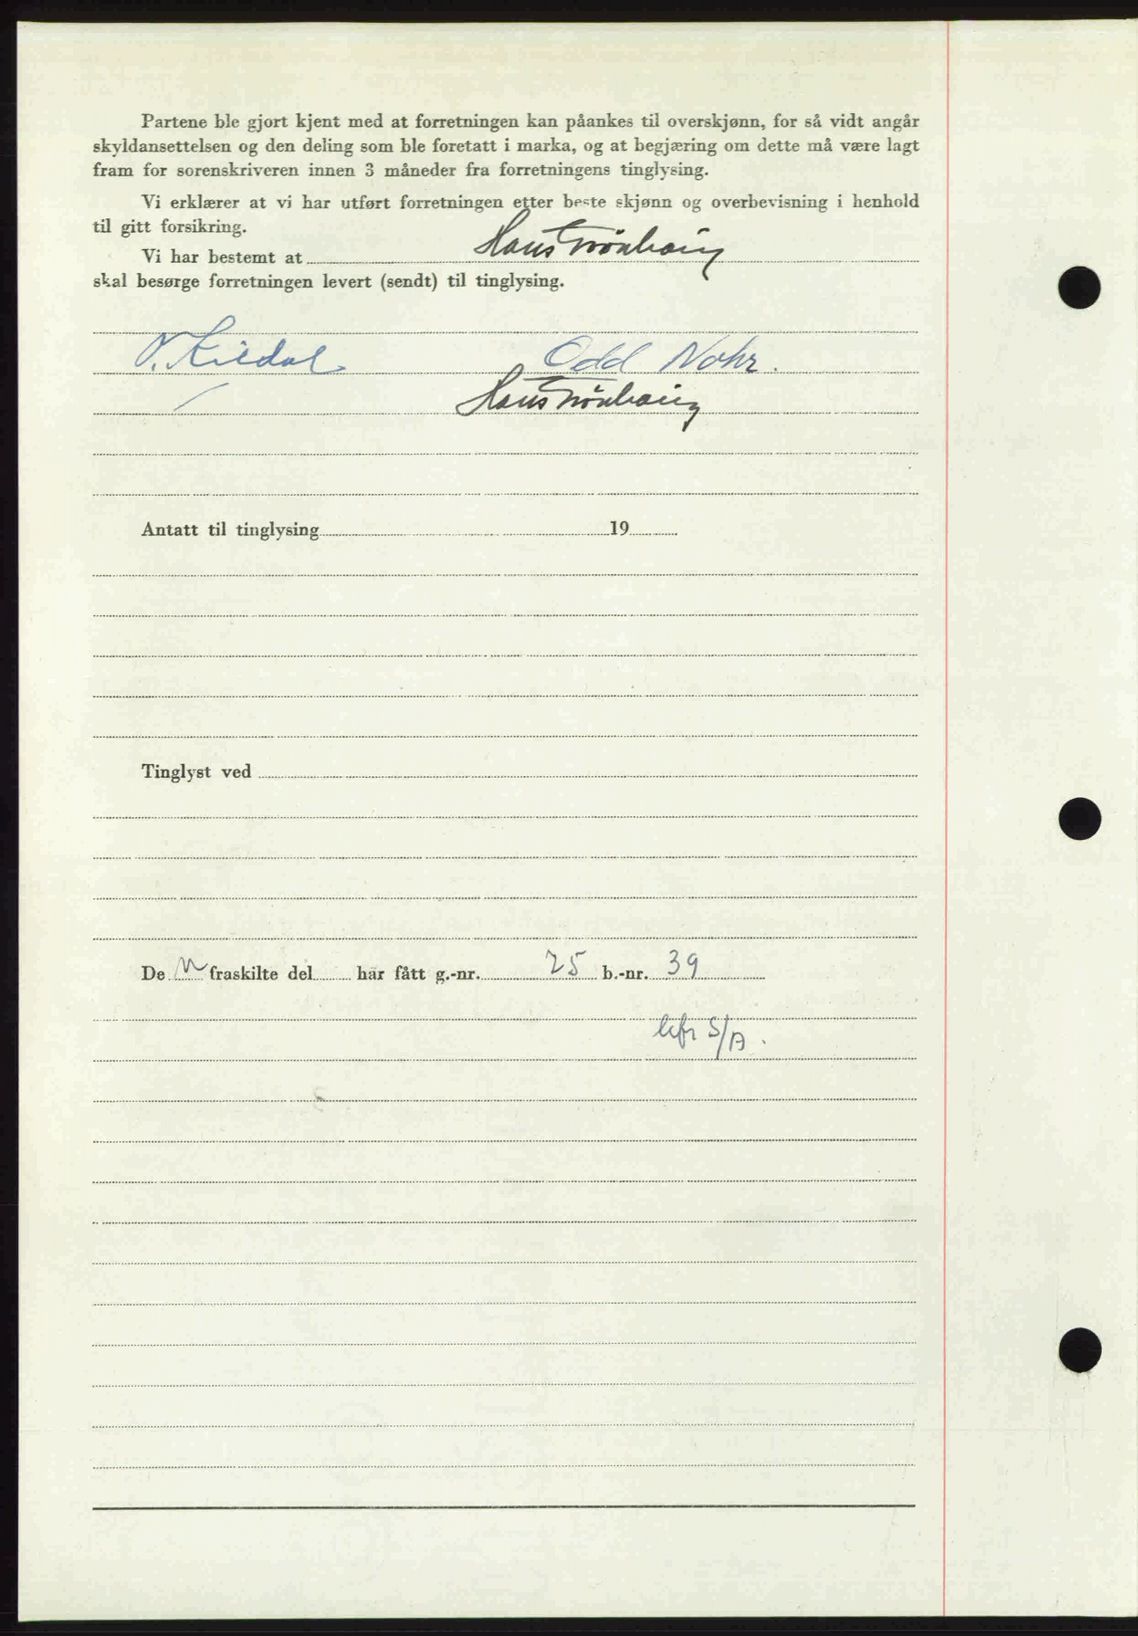 Partene ble gjort kjent med at forretningen kan påankes til overskjønn, for så vidt angår
skyldansettelsen og den deling som ble foretatt i marka, og at begjæring om dette må være lagt
fram for sorenskriveren innen 3 måneder fra forretningens tinglysing.
Vi erklærer at vi har utført forretningen etter beste skjønn og overbevisning i henhold
til gitt forsikring.
Vi har bestemt at Hans Trönhaug
skal besørge forretningen levert (sendt) til tinglysing.
Odd Nohr.
Hans Trönhaug
Antatt til tinglysing 19
Tinglyst ved
De n fraskilte del har fått g.-nr. 25 b.-nr. 39